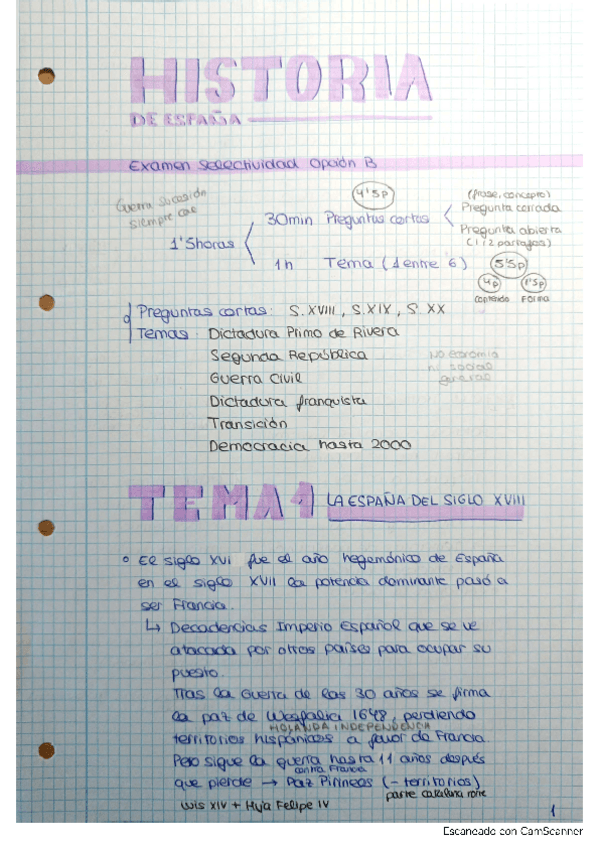 HISTORIA
DE ESPAÑA
Examen Selectividad Opción B
Guerra sucesión
siempre cae
4'5p
(frase, concepto)
30min Preguntas cortas
Pregunta cerrada
Pregunta abierta
(1 / 2 parrafos)
1'5horas
1h Tema (1 entre 6)
5'5p
4p
1'5p
contenido
Forma
Preguntas cortas: S. XVIII, S. XIX, S. XX
Temas: Dictadura Primo de Rivera
Segunda República
Guerra Civil
Dictadura franquista
Transición
Democracia hasta 2000
No economia
ni social
TEMA 1 LA ESPAÑA DEL SIGLO XVIII
El siglo XVI fue el año hegemónico de España
en el siglo XVII la potencia dominante pasó a
ser Francia.
↳ Decadencias Imperio Español que se ve
atacada por otros países para ocupar su
puesto.
Tras la Guerra de los 30 años se firma
la paz de Wesfalia 1648, perdiendo
HOLANDA INDEPENDENCIA
territorios hispánicos a favor de Francia.
Pero sigue la guerra hasta 11 años después
contra Francia
que pierde → Paz Pirineos (- territorios)
parte catalana norte
Luis XIV + Hija Felipe IV
1
Escaneado con CamScanner